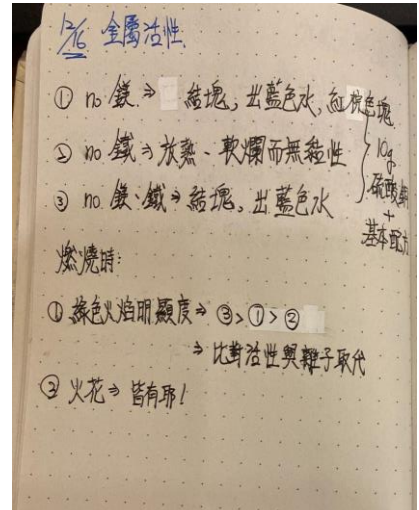 12/16 金屬活性
① no 鎂 ⇒ 結塊, 出藍色水, 紅棕色塊
② no 鐵 ⇒ 放熱、軟爛而無黏性
③ no 鎂、鐵 ⇒ 結塊, 出藍色水
10g
硫酸銅
+
基本配方
燃燒時:
① 綠色火焰明顯度 ⇒ ③>①>②
⇒ 比對活性與離子取代
② 火花 ⇒ 皆有耶!